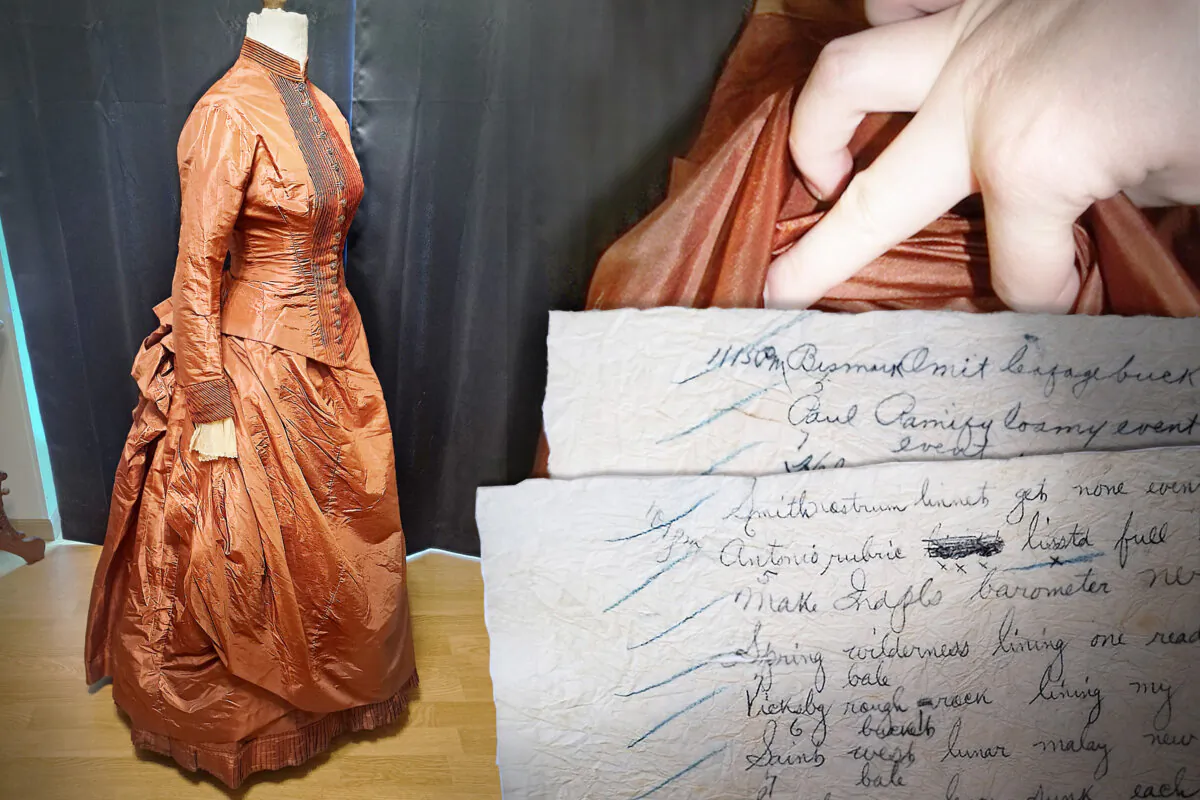 1113pm Bismark Omit leafage buck
Paul Ramify loamy event
event
Smith nostrum linnet get none even
Antonio rubric lisstd full
5
Make Indpls barometer
Spring wilderness lining one read
7 bale
Vicksbg rough rock lining my
6 buck
Saint west lunar malay new
7 bale
each